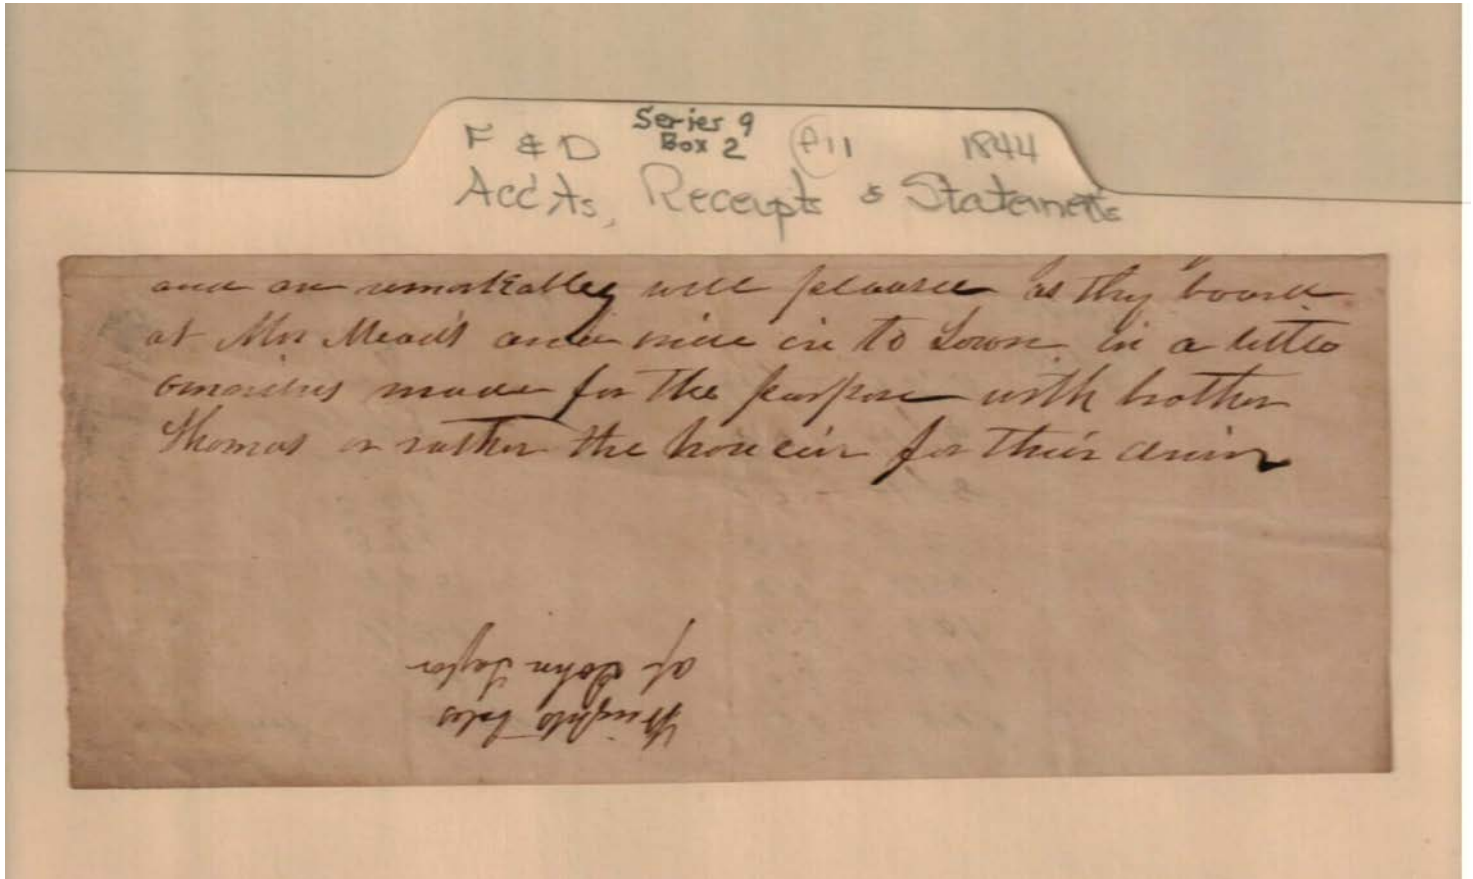 Series 9
F & D Box 2 f11 1844
Acc'ts, Receipts & Statements
and are remarkably well pleased as they board
at Mrs Mead's and ride in to Town in a little
omnibus made for the purpose with brother
Thomas or rather the for their
Weights bales
of John Taylor